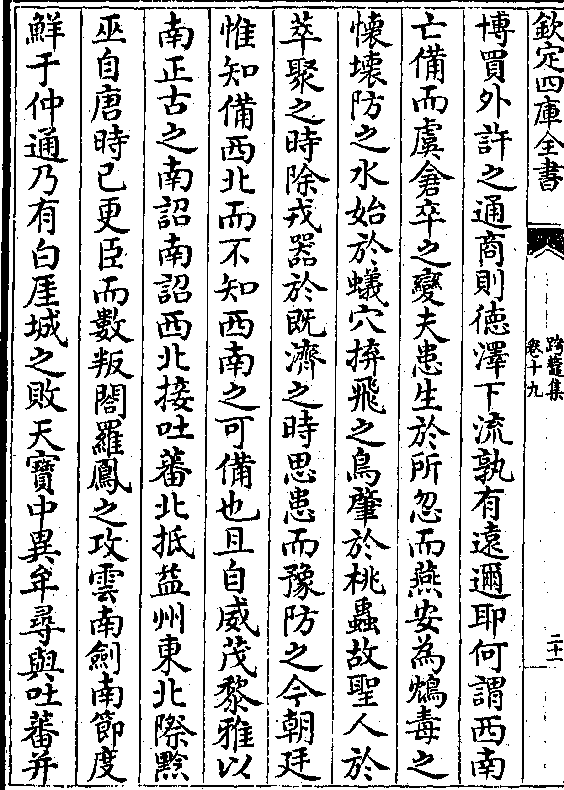 欽定四庫全書
跨鼇集
卷十九
二十一
博買外許之通商則德澤下流孰有遠邇耶何謂西南
亡備而虞倉卒之變夫患生於所忽而燕安為鴆毒之
懷壞防之水始於蟻穴拚飛之鳥肇於桃蟲故聖人於
萃聚之時除戎器於既濟之時思患而豫防之今朝廷
惟知備西北而不知西南之可備也且自威茂黎雅以
南正古之南詔南詔西北接吐蕃北抵益州東北際黔
巫自唐時已更臣而數叛閤羅鳳之攻雲南劍南節度
鮮于仲通乃有白厓城之敗天寶中異牟尋與吐蕃并